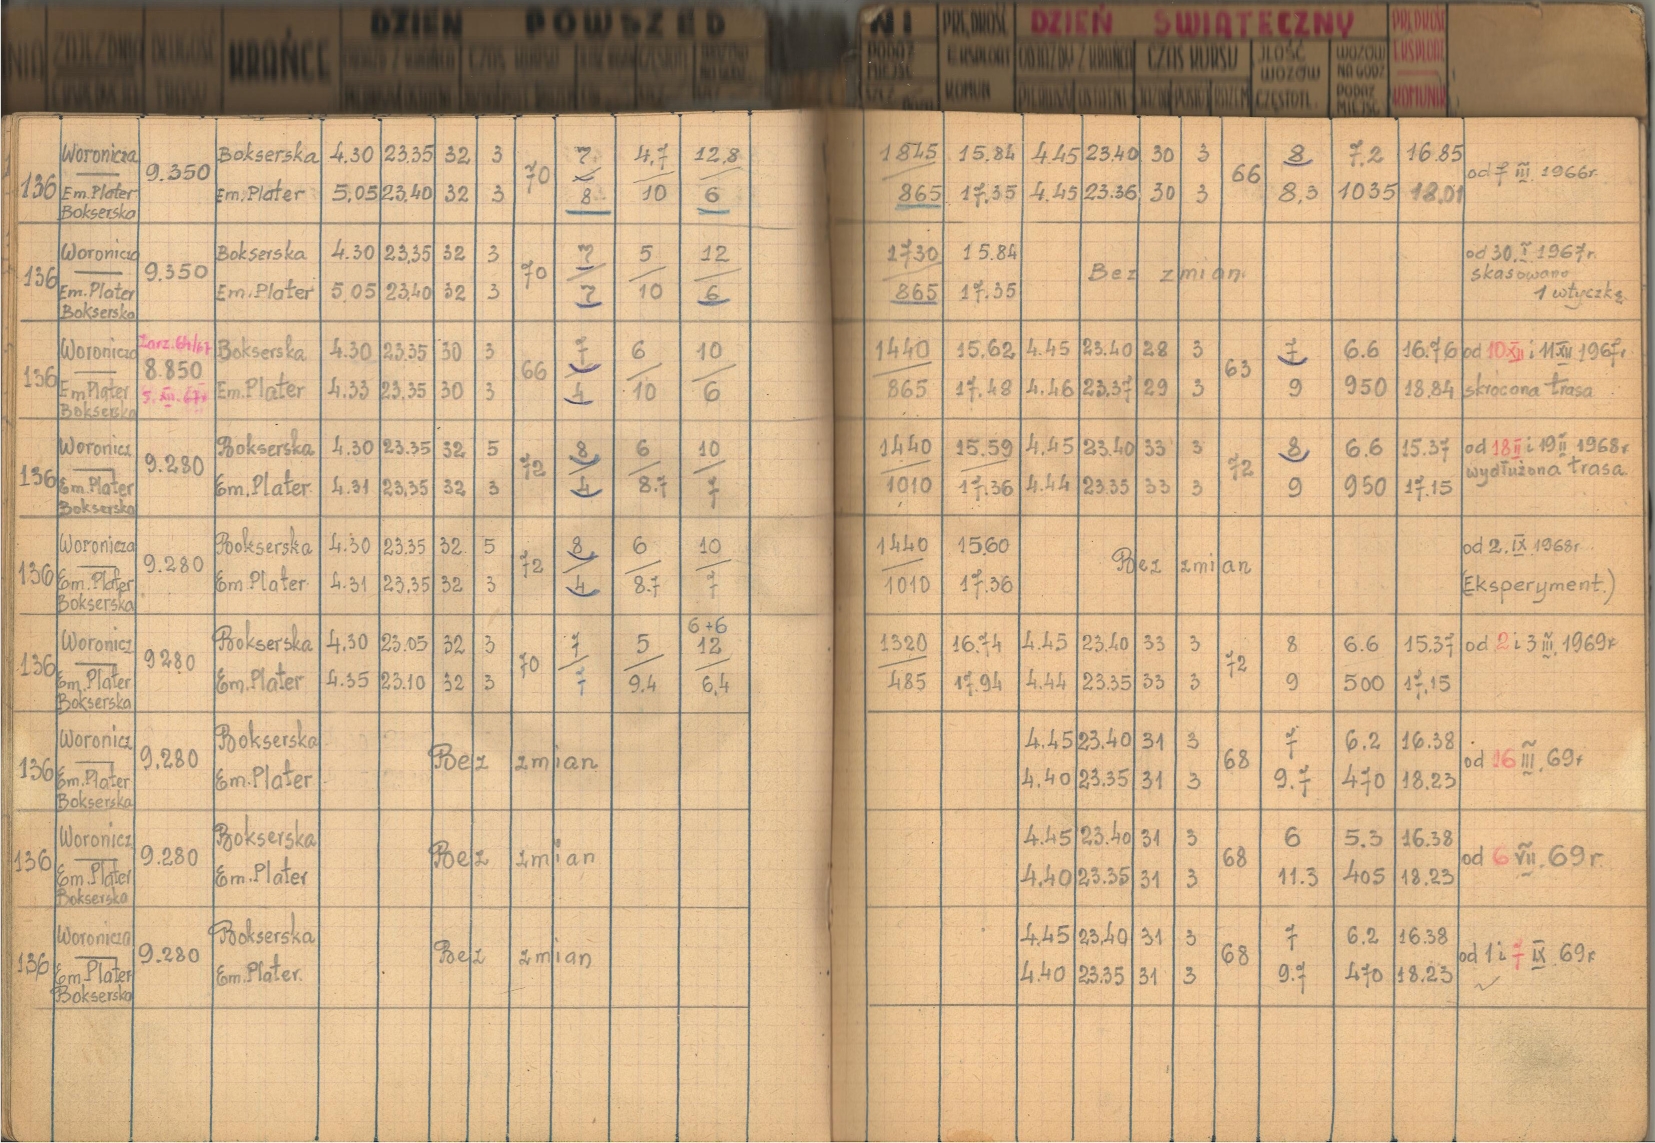 DZIEŃ POWSZED NI PRĘDKOŚĆ DZIEŃ ŚWIĄTECZNY PRĘDKOŚĆ
NIA DŁUGOŚĆ KRAŃCE CZAS KURSU PODAŻ EKSPLOAT ODJAZDY Z KRAŃCA CZAS KURSU JLOŚĆ WOZÓW EKSPLOAT
TRASY MIEJSC KOMUN WOZÓW NA GODZ KOMUNIK
CZĘSTOTL. PODAŻ MIEJSC
Woronicza Bokserska 4.30 23.35 32 3 7 4,7 12,8 1845 15.84 4.45 23.40 30 3 8 7,2 16.85
136 9.350 70 66 od 7 III 1966r.
Em.Plater Em.Plater 5,05 23,40 32 3 8 10 6 865 17.35 4.45 23.36 30 3 8,3 1035 18,01
Bokserska
Woronicza Bokserska 4.30 23.35 32 3 7 5 12 1730 15.84 od 30.I 1967r.
136 9.350 70 Bez zmian skasowano
Em.Plater Em.Plater 5,05 23,40 32 3 7 10 6 865 17.35 1 wtyczkę
Bokserska
Zarz.64/67
Woronicza Bokserska 4.30 23.35 30 3 7 6 10 1440 15.62 4.45 23.40 28 3 7 6.6 16.76 od 10XII i 11XII 1967r
136 8.850 66 63
Em Plater 5.XII.67r Em.Plater 4.33 23.35 30 3 4 10 6 865 17.48 4.46 23.37 29 3 9 950 18.84 skrócona trasa
Bokserska
Woronicz Bokserska 4.30 23.35 32 5 8 6 10 1440 15.59 4.45 23.40 33 3 8 6.6 15.37 od 18II i 19II 1968r
136 9.280 72 72 wydłużona trasa
Em.Plater Em.Plater 4.31 23,35 32 3 4 8.7 7 1010 17.36 4.44 23.35 33 3 9 950 17.15
Bokserska
Woronicza Bokserska 4.30 23.35 32 5 8 6 10 1440 15.60 od 2.IX 1968r
136 9.280 72 Bez zmian
Em.Plater Em.Plater 4.31 23,35 32 3 4 8.7 7 1010 17.36 (Eksperyment.)
Bokserska
6+6
Woronicz Bokserska 4,30 23.05 32 3 7 5 12 1320 16.74 4.45 23.40 33 3 8 6.6 15.37 od 2 i 3 III 1969r
136 9280 70 72
Em.Plater Em.Plater 4.35 23.10 32 3 7 9.4 6,4 485 17.94 4.44 23.35 33 3 9 500 17,15
Bokserska
Woronicz Bokserska 4.45 23.40 31 3 7 6.2 16.38
136 9,280 Bez zmian 68 od 16 III.69r
Em.Plater Em.Plater 4.40 23.35 31 3 9.7 470 18.23
Bokserska
Woronicz Bokserska 4.45 23.40 31 3 6 5.3 16.38
136 9.280 Bez zmian 68 od 6 VII.69r.
Em.Plater Em.Plater 4,40 23.35 31 3 11.3 405 18.23
Bokserska
Woronicza Bokserska 4.45 23.40 31 3 7 6.2 16.38
136 9.280 Bez zmian 68 od 1 i 7 IX 69r
Em.Plater Em.Plater. 4.40 23.35 31 3 9.7 470 18.23
Bokserska